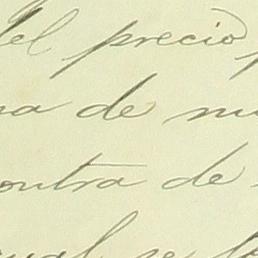 del precio,
na de
contra de
se